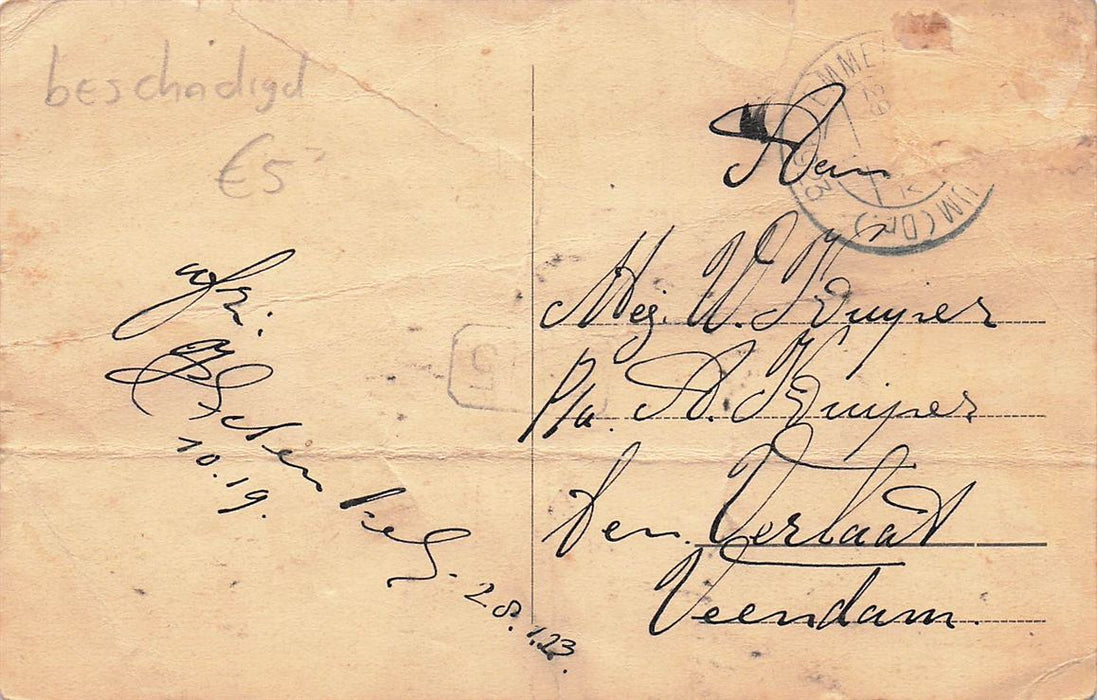 beschadigd
€5
afz.
10.19.
28.1.23.
EMME
UM (Dr.)
Aan
Mej. W. Kuyper
p/a. A. Kuyper
ten. Verlaat
Veendam.